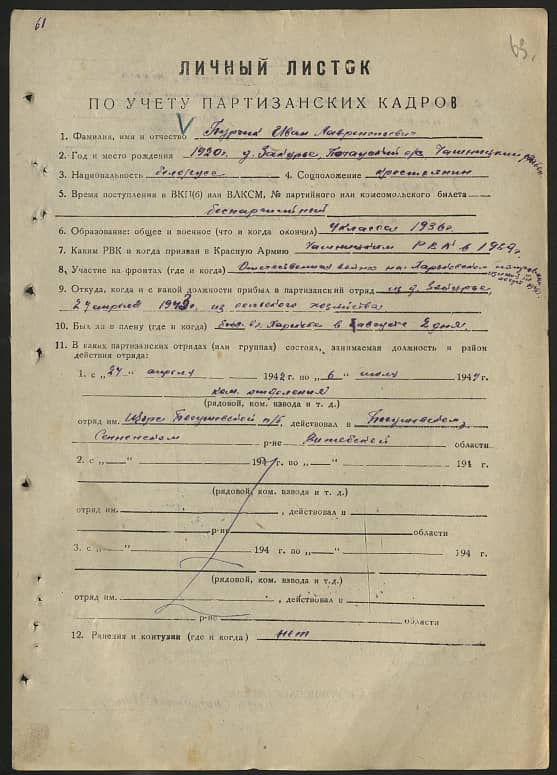 61
63.
ЛИЧНЫЙ ЛИСТОК
ПО УЧЕТУ ПАРТИЗАНСКИХ КАДРОВ
1. Фамилия, имя и отчество Иван Лаврентьевич
2. Год и место рождения 1920 г. д. с/с, Чашницкий район
3. Национальность белорус 4. Соцположение крестьянин
5. Время поступления в ВКП(б) или ВЛКСМ, № партийного или комсомольского билета
беспартийный
6. Образование: общее и военное (что и когда окончил) 4 класса 1936 г.
7. Каким РВК и когда призван в Красную Армию Чашницким РВК в 19
8. Участие на фронтах (где и когда) Отечественная война на
9. Откуда, когда и с какой должности прибыл в партизанский отряд из д.
24 апреля 1942 г. из сельского хозяйства
10. Был ли в плену (где и когда) был в августе 2 дня
11. В каких партизанских отрядах (или группах) состоял, занимаемая должность и район
действия отряда:
1. с „24" апреля 1942 г. по „6" июля 1944 г.
ком. отделения
(рядовой, ком. взвода и т. д.)
отряд им. Щорс п/б, действовал в
Сенненском р-не Витебской области
2. с „ " 194 г. по „ " 194 г.
(рядовой, ком. взвода и т. д.)
отряд им. , действовал в
р-не области
3. с „ " 194 г. по „ " 194 г.
(рядовой, ком. взвода и т.д.)
отряд им. , действовал в
р-не области
12. Ранения и контузии (где и когда) нет